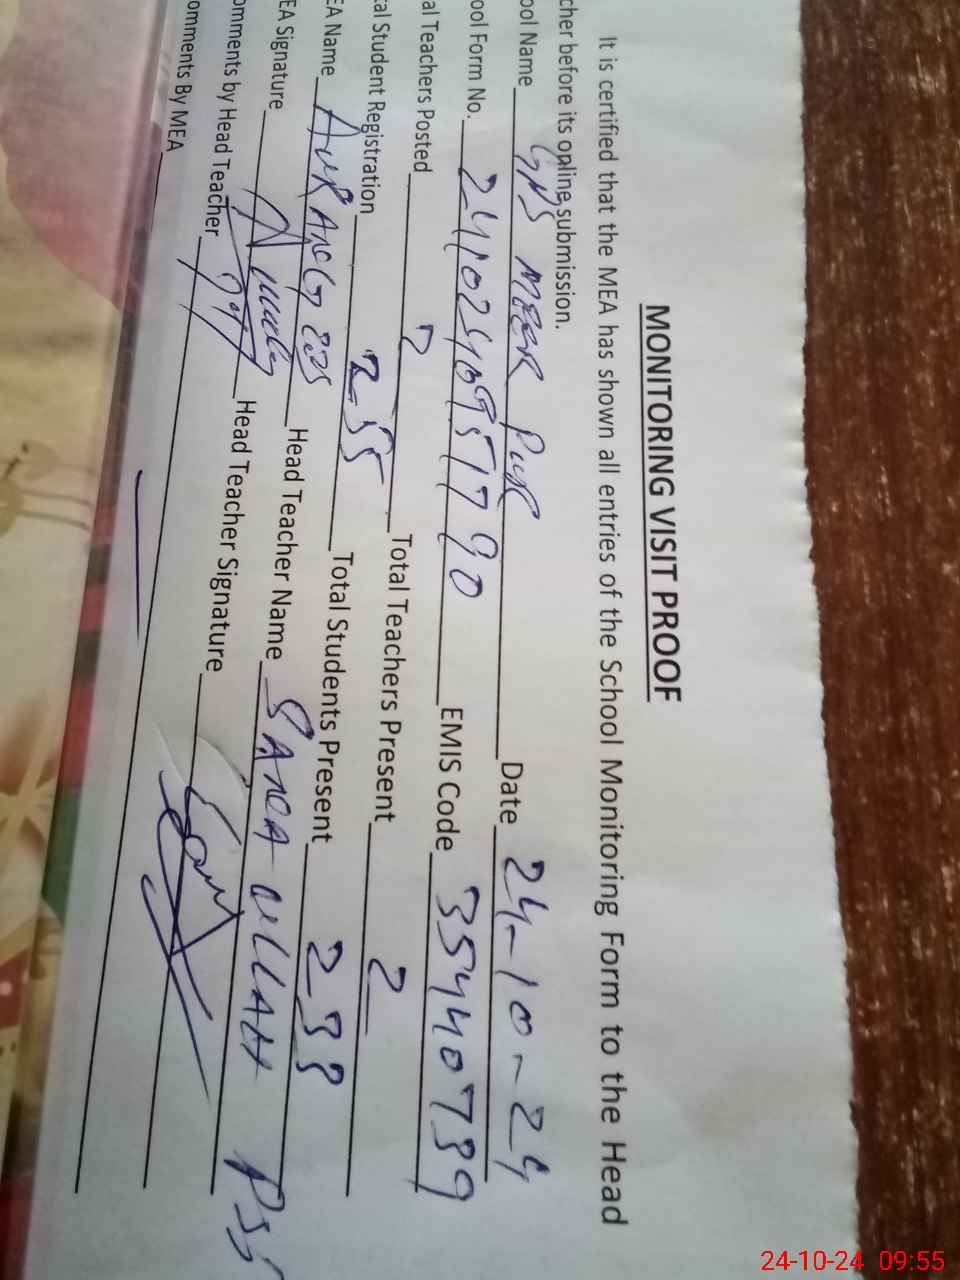 MONITORING VISIT PROOF
It is certified that the MEA has shown all entries of the School Monitoring Form to the Head
cher before its online submission.
ool Name GHS MEER PUR Date 24-10-24
ool Form No. EMIS Code 35440739
al Teachers Posted 2 Total Teachers Present 2
tal Student Registration 255 Total Students Present 233
EA Name AURANGZEB Head Teacher Name SANA ULLAH PST
EA Signature Head Teacher Signature
omments by Head Teacher
omments By MEA
24-10-24 09:55